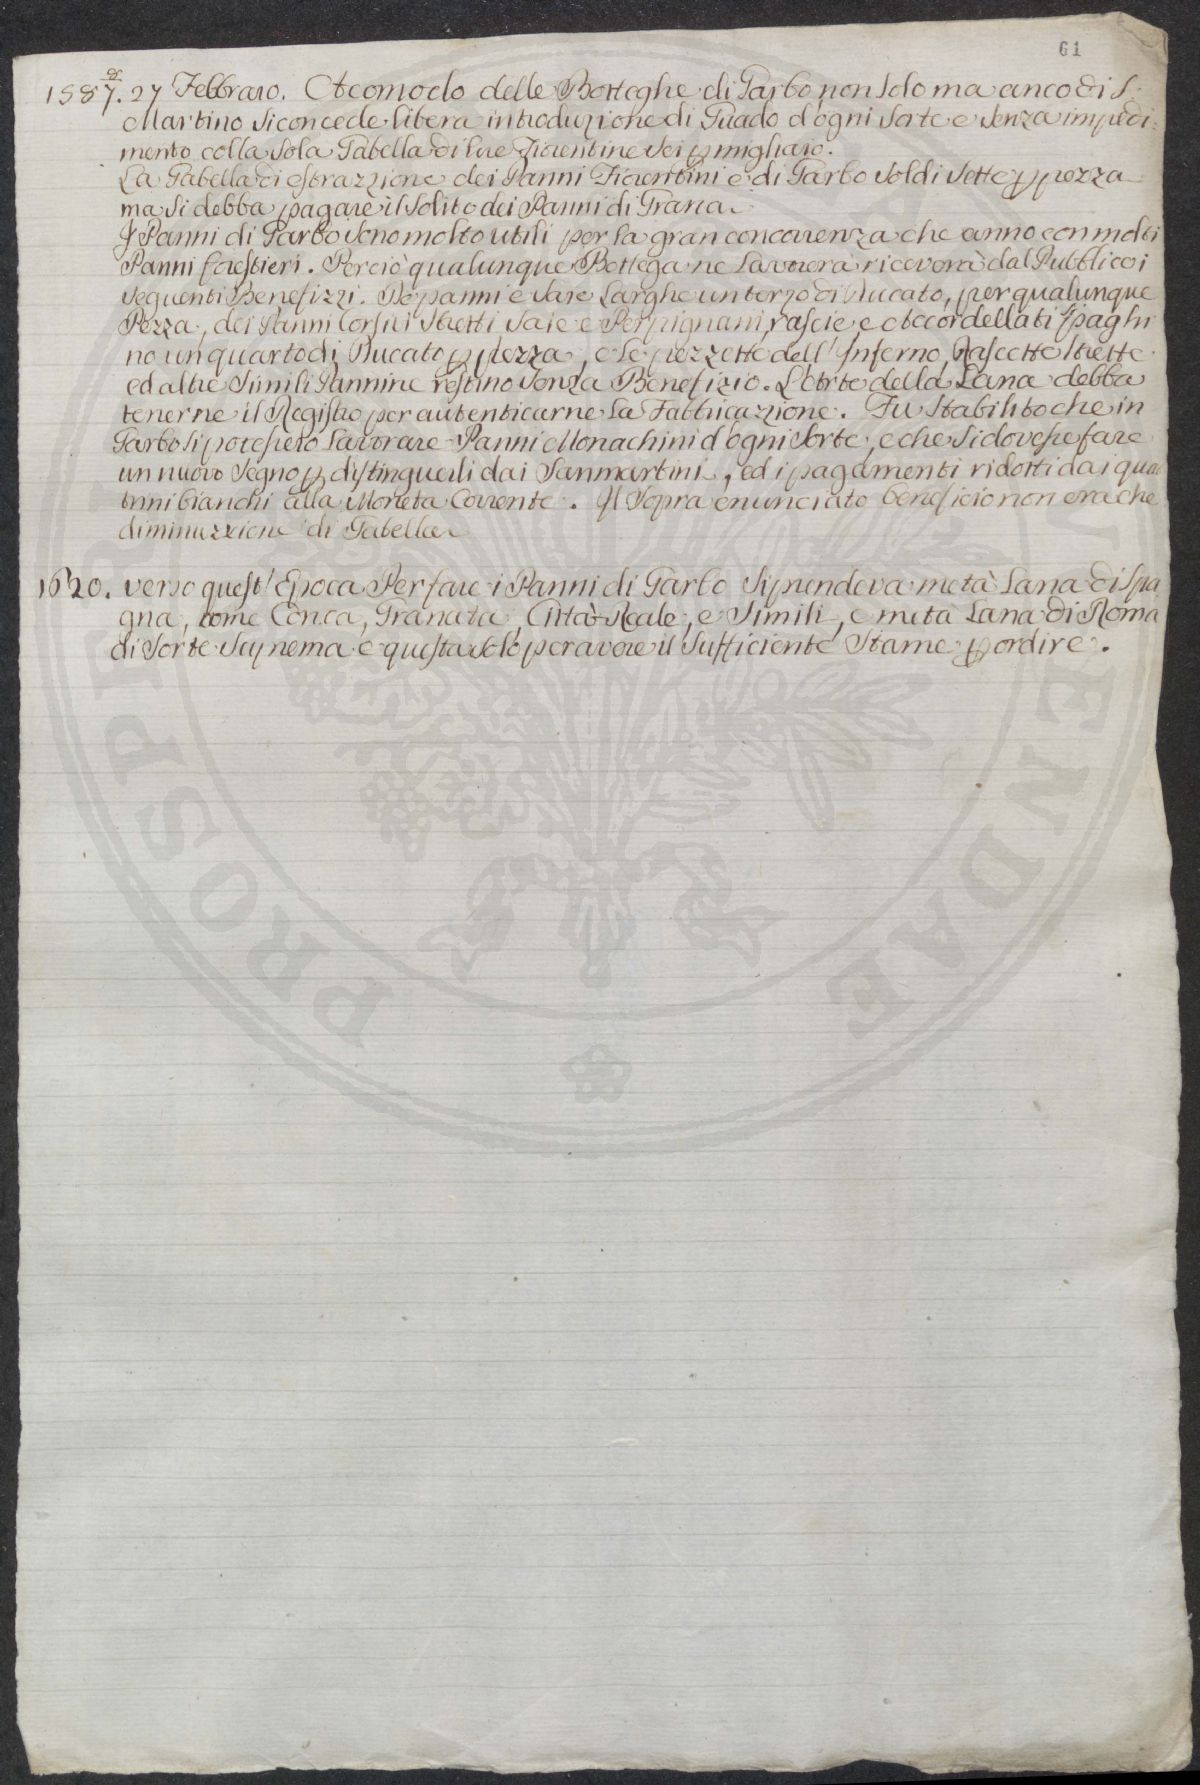 61
1587. 27 Febbraro. Acomodo delle Botteghe di Garbo non solo ma anco di S.
Martino si concede libera introduzione di Guado d'ogni sorte e senza impedi-
mento colla sola Gabella di Lire Fiorentine sei p migliaio.
La Gabella di estrazzione dei Panni Fiorentini e di Garbo soldi sette p pezza
ma si debba pagare il solito dei Panni di Grana.
I Panni di Garbo sono molto utili per la gran concorrenza che anno con molti
Panni forestieri. Perciò qualunque Bottega ne lavorerà riceverà dal Pubblico i
seguenti Benefizzi. De panni e saie larghe un terzo di Ducato, per qualunque
Pezza, dei Panni Corsivi stretti saie e Perpignani, rascie e Accordellati si paghi
no un quarto di Ducato p pezza, e le pezzette dell' Inferno, Rascette strette
ed altre simili Pannine restino senza Benefizio. L'Arte della Lana debba
tenerne il Registro per autenticarne la Fabbricazzione. Fu stabilito che in
Garbo si potessero lavorare Panni Monachini d'ogni sorte, e che si dovesse fare
un nuovo segno p distinguerli dai Sanmartini, ed i pagamenti ridotti dai quat
trini bianchi alla Moneta Corrente. Il sopra enunciato beneficio non era che
diminuzzione di Gabella
1620. verso quest' Epoca Per fare i Panni di Garbo si prendeva metà Lana di Spa
gna, come Conca, Granata, Città Reale, e simili, e metà Lana di Roma
di sorte suprema e questa solo per avere il sufficiente stame p ordire.
PROSPERITATI
VENDAE